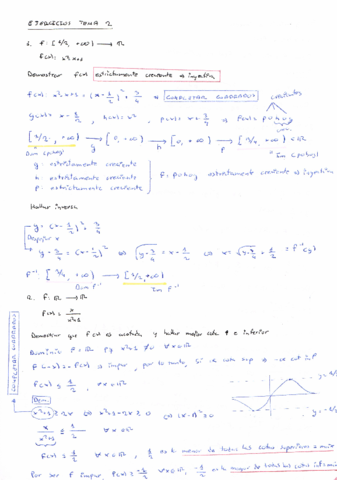 EJERCICIOS TEMA 2
1. f: [1/2, +∞) ⟶ ℝ
f(x) = x²-x+1
Demostrar f(x) estrictamente creciente e inyectiva
f(x) = x²-x+1 = (x - 1/2)² + 3/4 → COMPLETAR CUADRADOS
crecientes
g(x) = x - 1/2, h(x) = x², p(x) = x + 3/4 ⇒ f(x) = p∘h∘g
[1/2, +∞) ⟶ [0, +∞) ⟶ [0, +∞) ⟶ [3/4, +∞) ⊂ ℝ
g h p
g: estrictamente creciente
h: estrictamente creciente
p: estrictamente creciente
f: p∘h∘g estrictamente creciente e inyectiva
Hallar inversa
y = (x - 1/2)² + 3/4
Despejar x
y - 3/4 = (x - 1/2)² ⇔ √(y - 3/4) = x - 1/2 ⇔ x = √(y - 3/4) + 1/2 = f⁻¹(y)
f⁻¹: [3/4, +∞) ⟶ [1/2, +∞)
Dom f⁻¹ Im f⁻¹
2. f: ℝ ⟶ ℝ
f(x) = x/(x²+1)
Demostrar que f(x) es acotada y hallar mejor cota y inferior
Dominio f = ℝ pq x²+1 ≠ 0 ∀x∈ℝ
f(-x) = -f(x) es impar, por lo tanto, si k cota sup ⇒ -k cota inf
f(x) ≤ 1/2, ∀x∈ℝ
COMPLETAR CUADRADOS
Dem:
x²+1 ≥ 2x ⇔ x²+1-2x ≥ 0 ⇔ (x-1)² ≥ 0
x/(x²+1) ≤ 1/2 ∀x∈ℝ
f(x) ≤ 1/2 ∀x∈ℝ, 1/2 es la menor de todas las cotas superiores
Por ser f impar, f(x) ≥ -1/2 ∀x∈ℝ, -1/2 es la mayor de todas las cotas